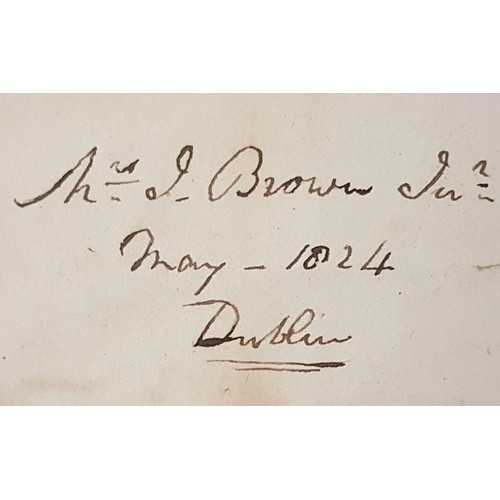 Mrs. J. Brown Jnr.
May - 1824
Dublin